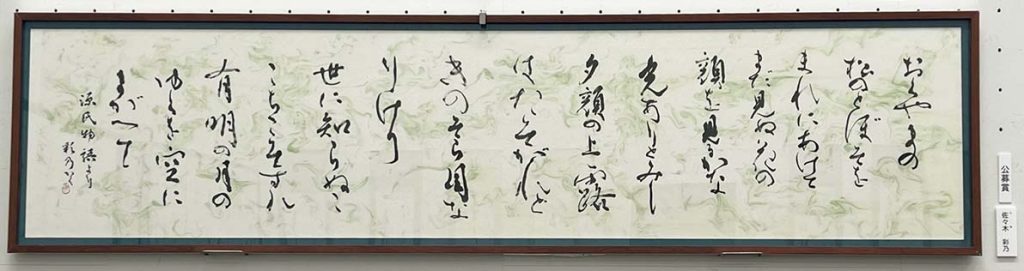 おくやまの
松のとぼそを
まれにあけて
まだ見ぬ花の
顔を見るかな
光ありとみし
夕顔の上露
はたそがれど
きのそら目な
りけり
世に知らぬこ
こちこそすれ
有明の月の
ゆくへを空に
まがへて
源氏物語より
彩乃
公募賞
佐々木 彩乃